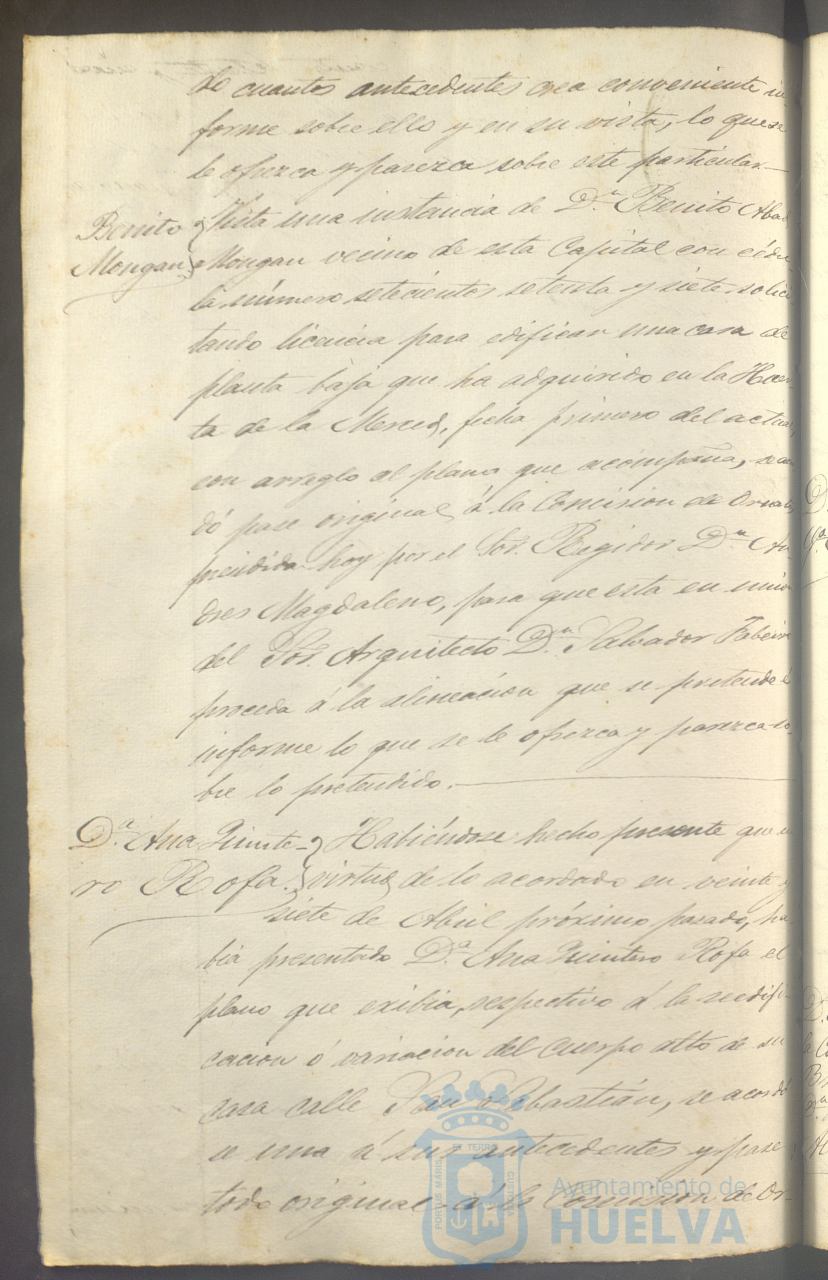 de cuantos antecedentes crea conveniente in-
forme sobre ello y en su vista, lo que se
le ofrezca y parezca sobre este particular.—
Benito
Mongan
Vista una instancia de D.n Benito Abad
Mongan vecino de esta Capital con cédu-
la número setecientos setenta y siete solici
tando licencia para edificar una casa de
planta baja que ha adquirido en la Huer-
ta de la Merced, fecha primero del actual,
con arreglo al plano que acompaña, se acor
dó pase original á la Comision de Ornato,
presidida hoy por el Sor. Regidor D.n An
dres Magdaleno, para que esta en union
del Sor. Arquitecto D.n Salvador
proceda á la alineacion que se pretende é
informe lo que se le ofrezca y parezca so-
bre lo pretendido.
D.a Ana Quinte-
ro Rofa.
Habiéndose hecho presente que en
virtud de lo acordado en veinte y
siete de Abril próximo pasado, ha
bia presentado D.a Ana Quintero Rofa el
plano que exibia, respectivo á la reedifi-
cacion ó variacion del cuerpo alto de su
casa calle San Sebastián, se acordó
se una á sus antecedentes y pase
todo original á la Comision de Or-
PORTUS MARIS
ET TERRÆ
CUSTODIA
Ayuntamiento de
HUELVA